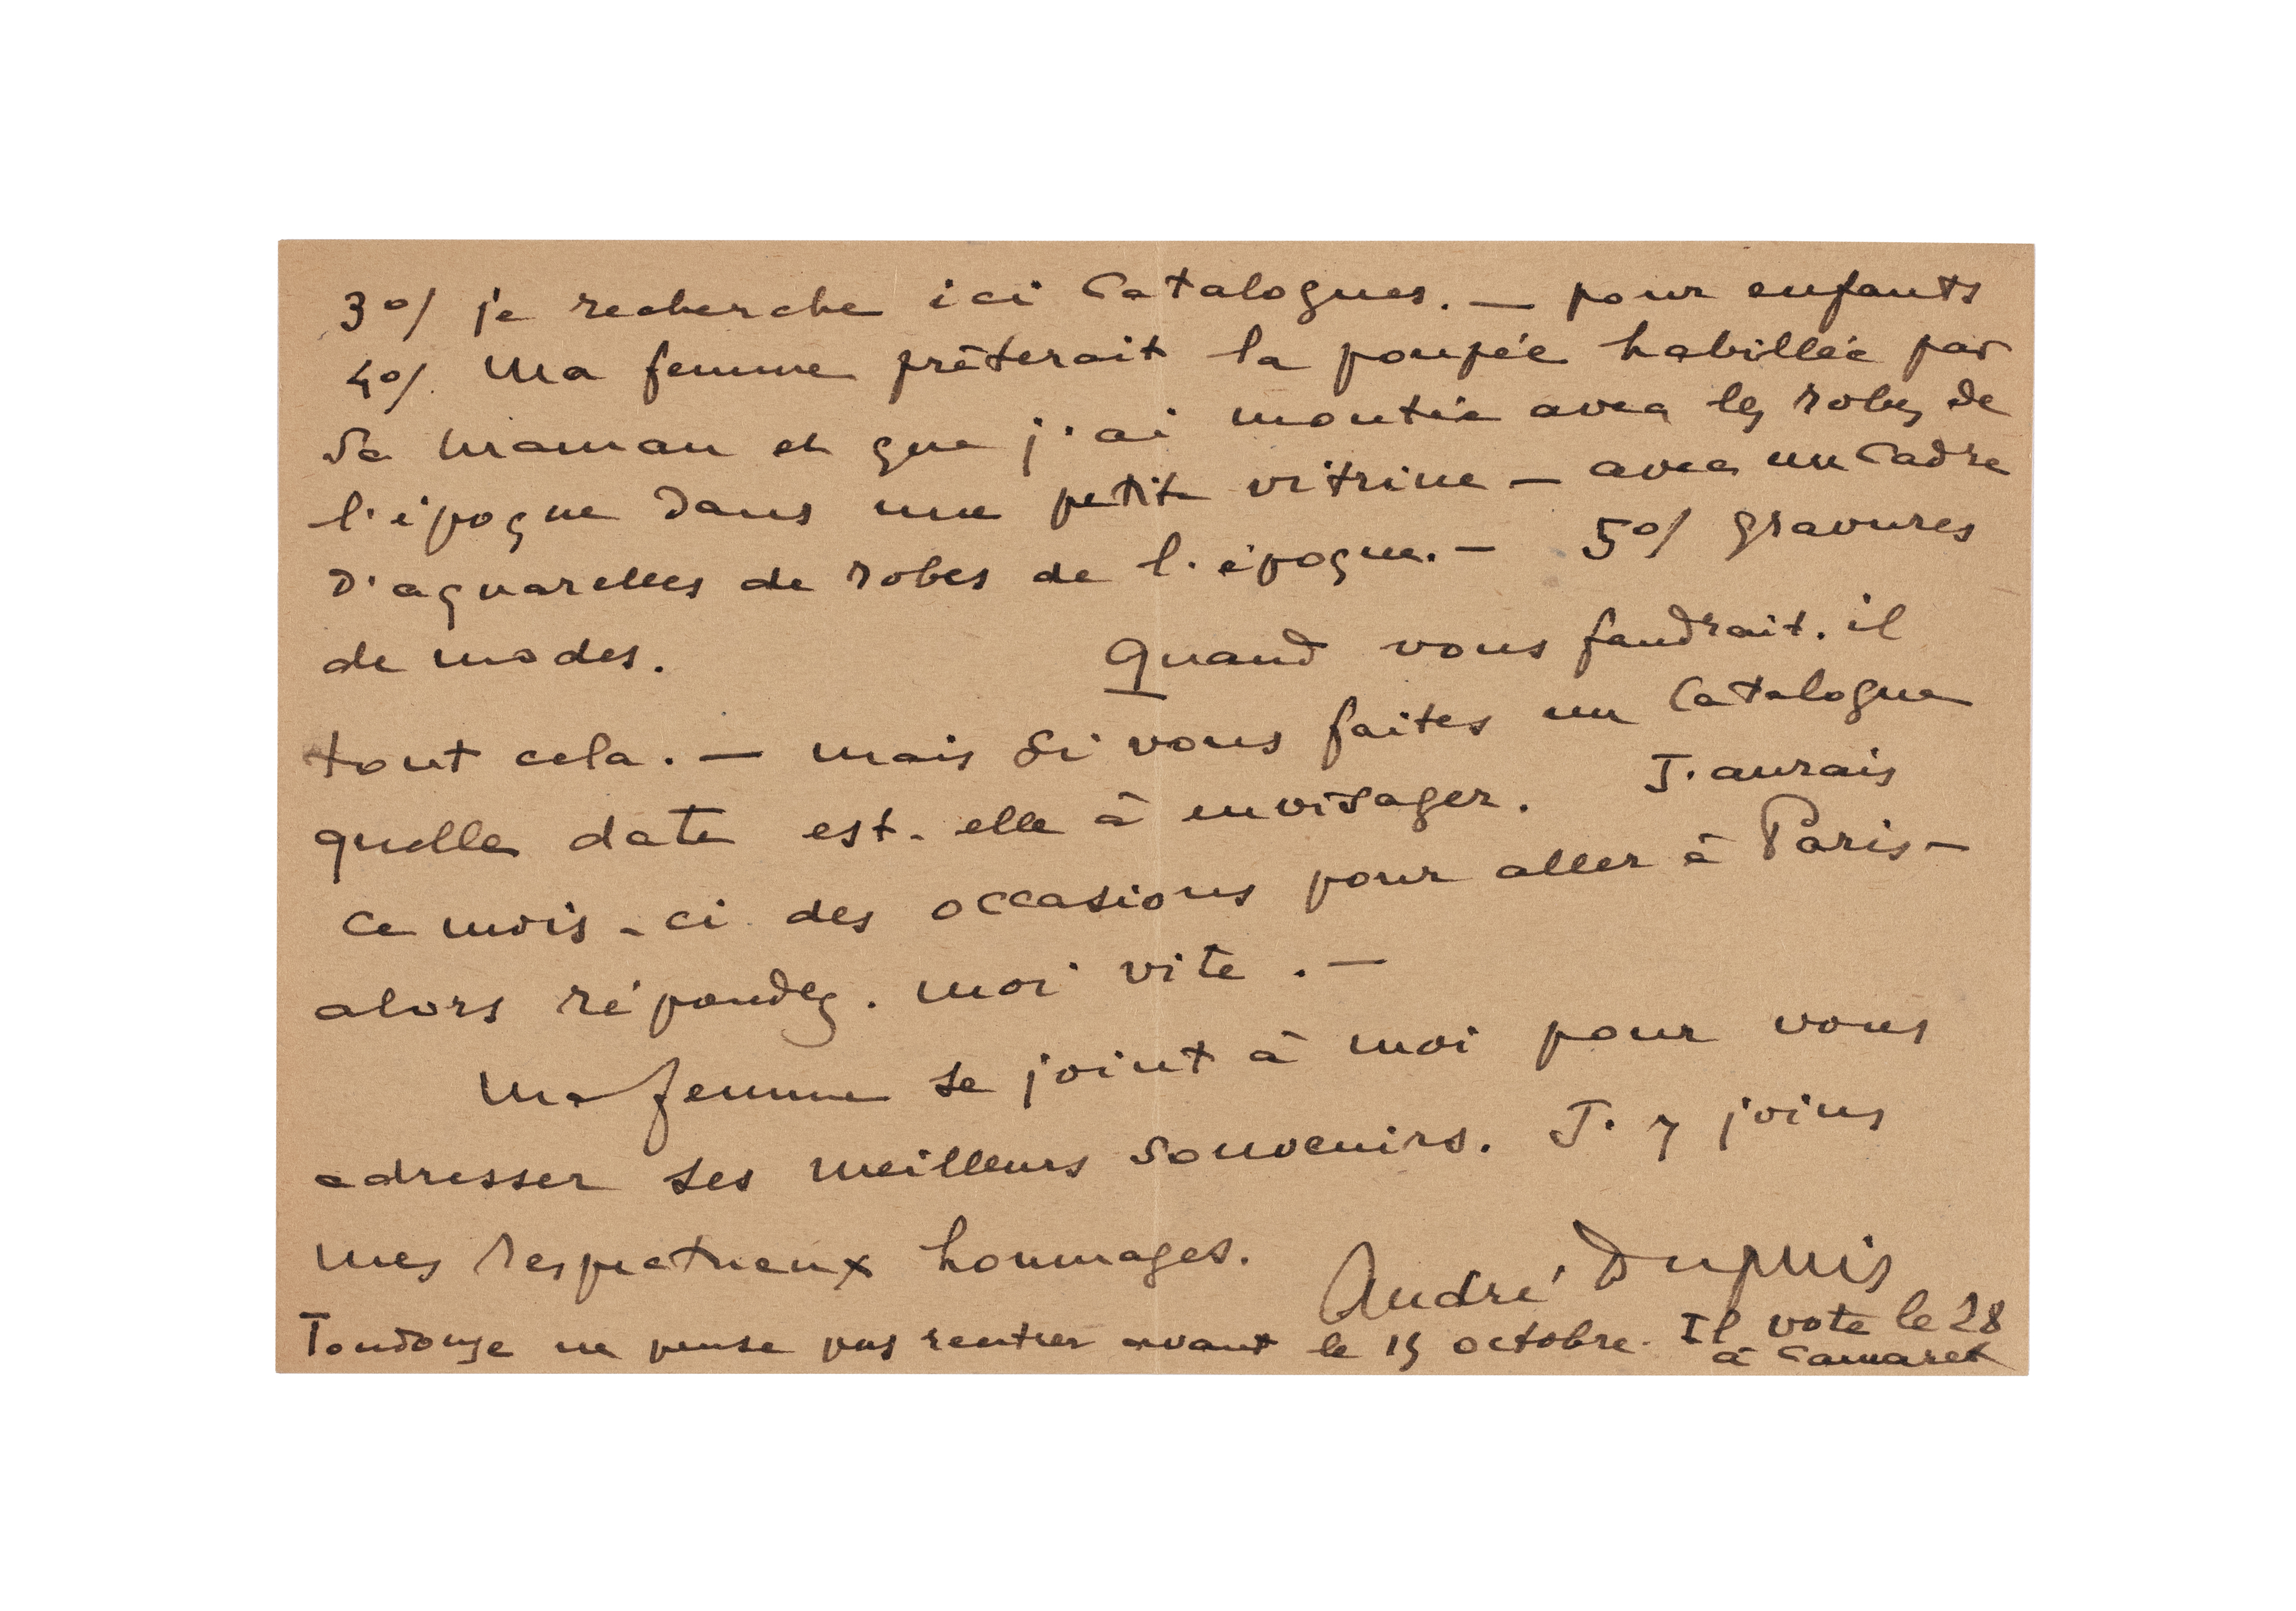 3°/ je recherche ici Catalogues. — pour enfants
4°/. Ma femme prêterait la poupée habillée par
sa maman et que j'ai montée avec les robes de
l'époque dans une petite vitrine — avec un cadre
d'aquarelles de robes de l'époque. — 5°/ gravures
de modes. Quand vous faudrait-il
tout cela. — mais si vous faites un Catalogue
quelle date est-elle à envisager. J'aurais
ce mois-ci des occasions pour aller à Paris —
alors répondez-moi vite. —
Ma femme se joint à moi pour vous
adresser ses meilleurs souvenirs. J'y joins
mes respectueux hommages.
André Dupuis
Toudouze ne pense pas rentrer avant le 15 octobre. Il vote le 28
à Camaret